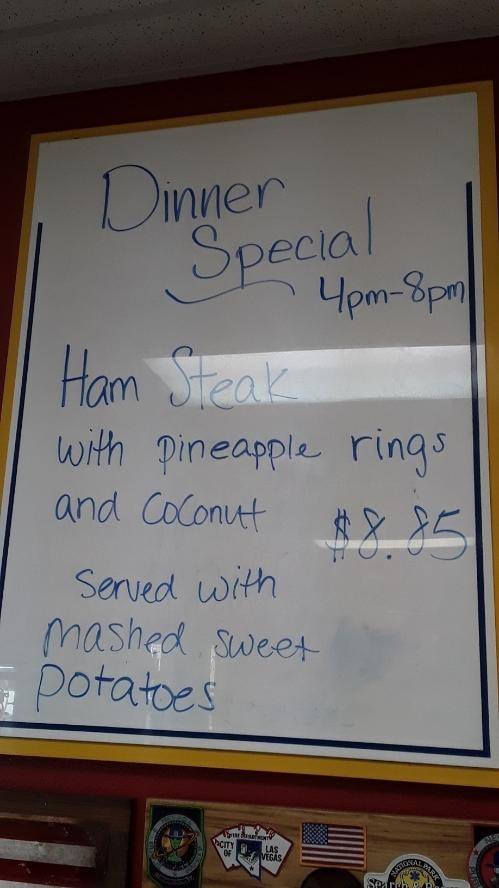 Dinner
Special
4pm-8pm
Ham Steak
with pineapple rings
and Coconut
$8.85
Served with
mashed sweet
potatoes
FIRE DEPARTMENT
CITY OF
LAS VEGAS
NATIONAL PARK
Search &